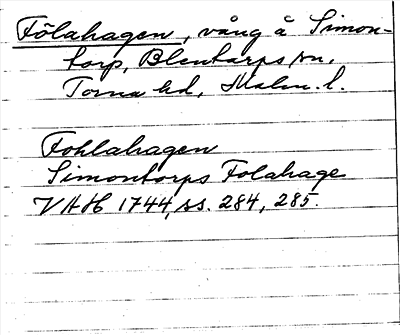 Fölahagen, vång å Simon-
torp, Blentarps sn,
Torna hd, Malm. l.
Fohlahagen
Simontorps Folahage
VHH 1744, ss. 284, 285.